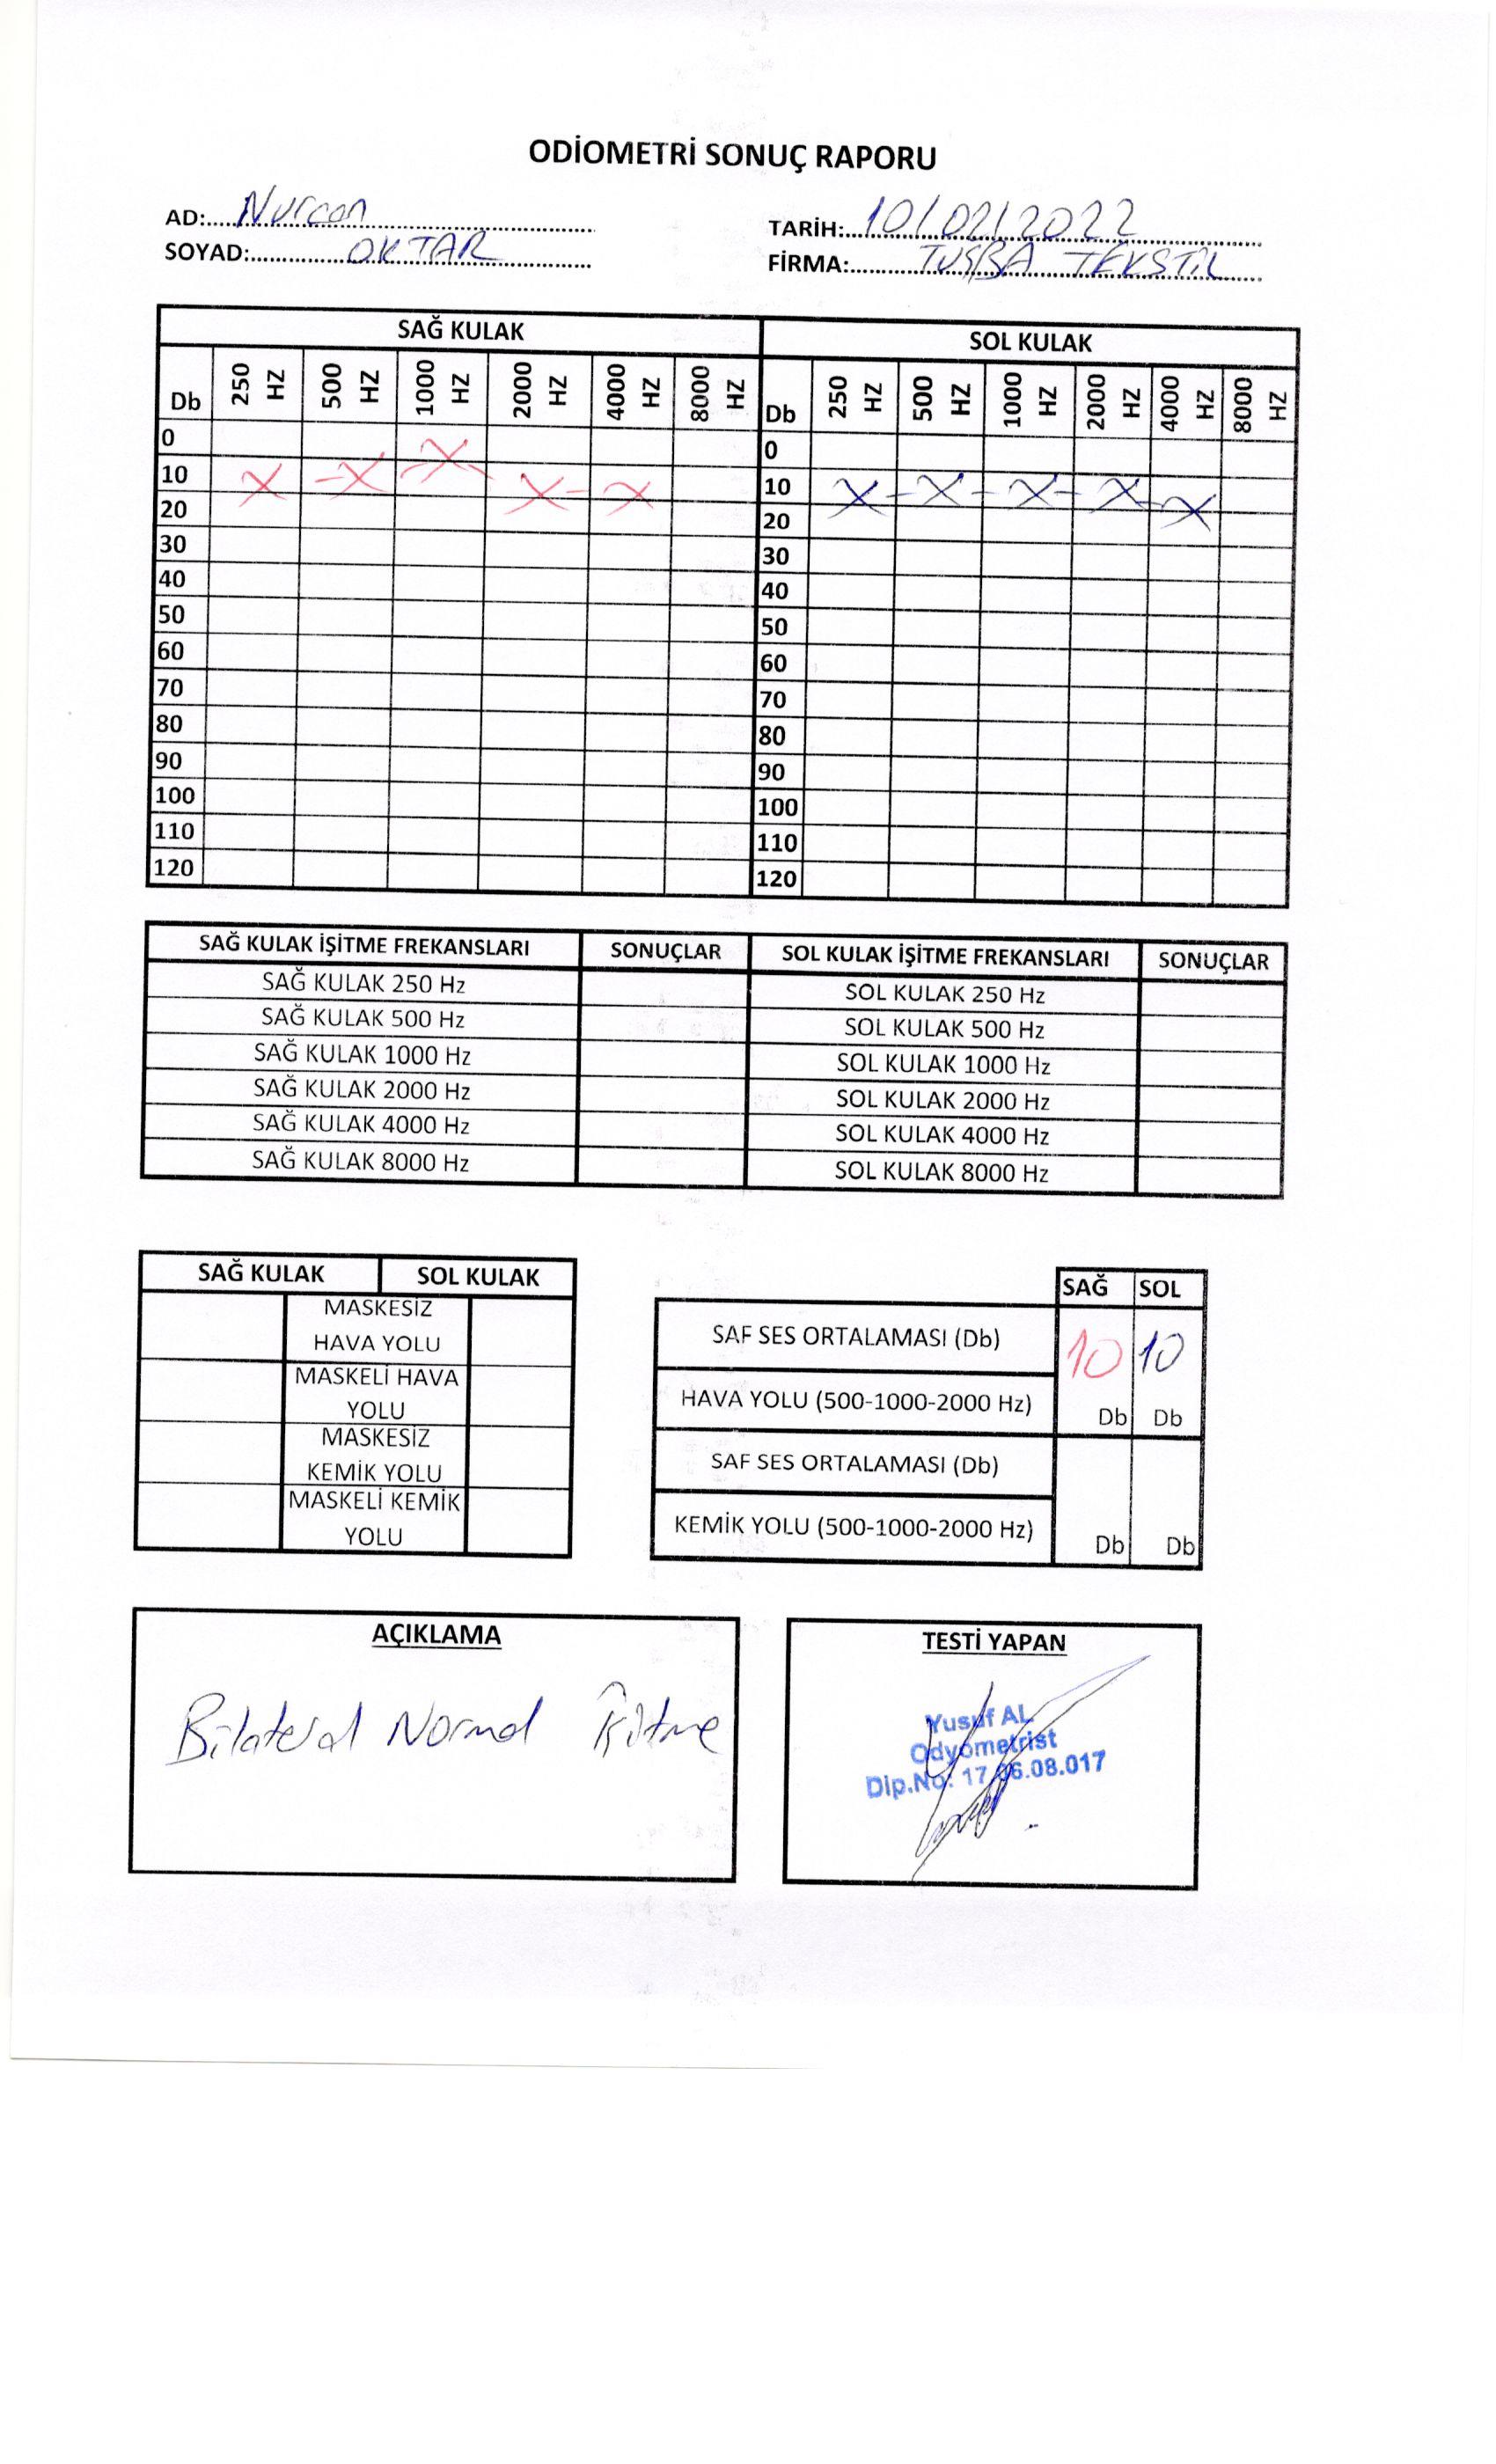 ODİOMETRİ SONUÇ RAPORU
AD: Nurcan
TARİH: 10/02/2022
SOYAD: OKTAR
FİRMA: TUĞBA TEKSTİL
SAĞ KULAK SOL KULAK
Db 250 HZ 500 HZ 1000 HZ 2000 HZ 4000 HZ 8000 HZ Db 250 HZ 500 HZ 1000 HZ 2000 HZ 4000 HZ 8000 HZ
0 0
10 10
20 20
30 30
40 40
50 50
60 60
70 70
80 80
90 90
100 100
110 110
120 120
SAĞ KULAK İŞİTME FREKANSLARI SONUÇLAR SOL KULAK İŞİTME FREKANSLARI SONUÇLAR
SAĞ KULAK 250 Hz SOL KULAK 250 Hz
SAĞ KULAK 500 Hz SOL KULAK 500 Hz
SAĞ KULAK 1000 Hz SOL KULAK 1000 Hz
SAĞ KULAK 2000 Hz SOL KULAK 2000 Hz
SAĞ KULAK 4000 Hz SOL KULAK 4000 Hz
SAĞ KULAK 8000 Hz SOL KULAK 8000 Hz
SAĞ KULAK SOL KULAK
MASKESİZ
HAVA YOLU
MASKELİ HAVA
YOLU
MASKESİZ
KEMİK YOLU
MASKELİ KEMİK
YOLU
SAĞ SOL
SAF SES ORTALAMASI (Db) 10 10
HAVA YOLU (500-1000-2000 Hz) Db Db
SAF SES ORTALAMASI (Db)
KEMİK YOLU (500-1000-2000 Hz) Db Db
AÇIKLAMA
Bilateral Normal İşitme
TESTİ YAPAN
Yusuf AL
Odyometrist
Dip.No: 17.06.08.017